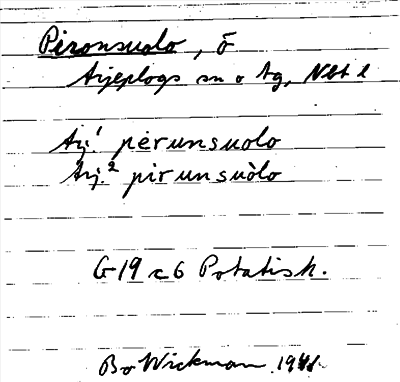 Pironsuolo, ö
Arjeplogs sn o lg, Nbt l
Arj.1 pèrunsuolo
Arj.2 pìrunsuòlo
G19 c6 Potatish.
Bo Wickman 1941.